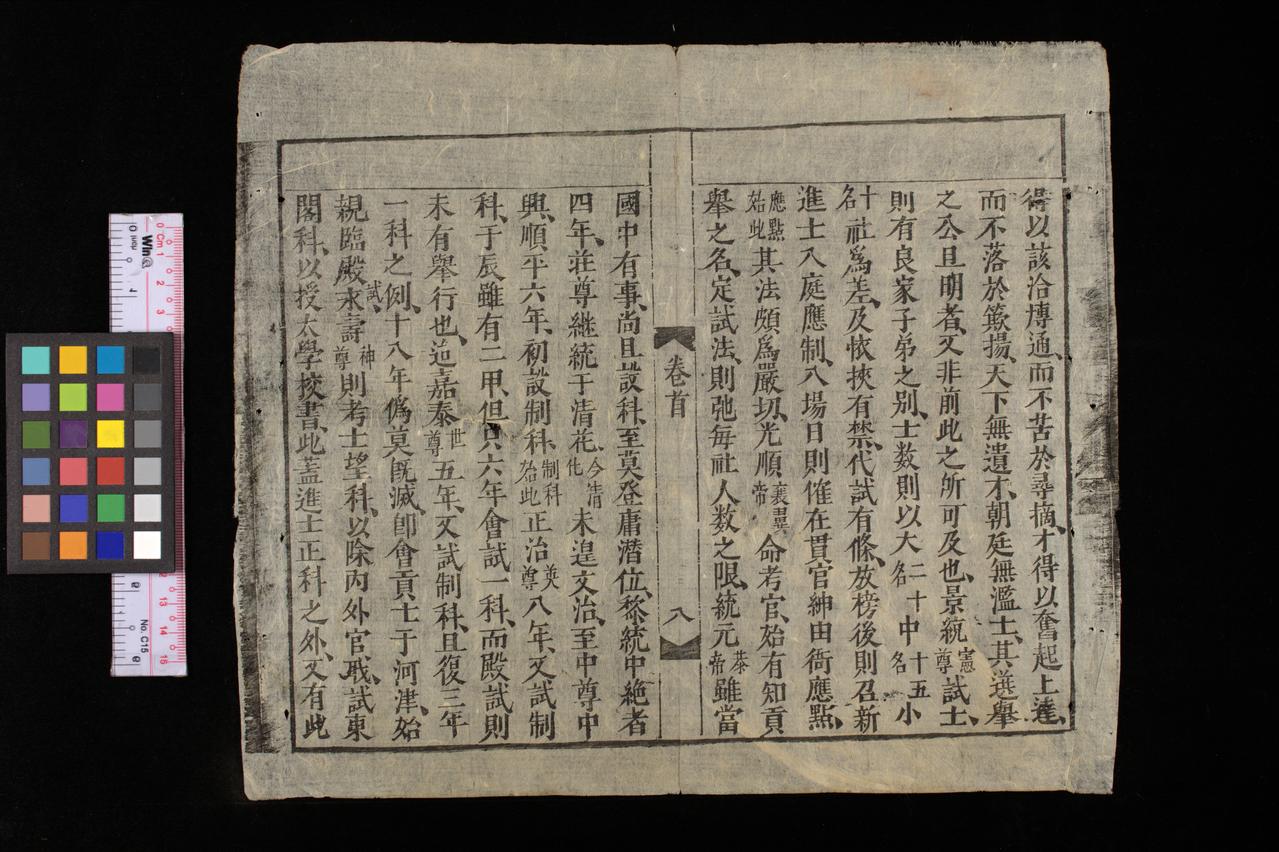 得以該洽博通、而不苦於尋摘、才得以奮起上達、
而不落於簸揚、天下無遺才、朝廷無濫士、其選舉
之公且明者、又非前此之所可及也、景統憲尊試士、
則有良家子弟之別、士数則以大二十名中十五名小
十名社為差、及恢挾有禁、代試有條、放榜後則召新
進士入庭應制、入場日則催在貫官紳由衙應點、
應點始此其法頗為嚴切、光順襄翼帝命考官、始有知貢
舉之名、定試法、則弛每社人数之限、統元恭帝雖當
國中有事、尚且設科、至莫登庸潛位、黎統中絶者
四年、荘尊継統于清花、今清化未遑文治、至中尊中
興、順平六年、初設制科、制科始此正治英尊八年、又試制
科、于辰雖有二甲、但只六年會試一科、而殿試則
未有舉行也、迨嘉泰世尊五年、又試制科、且復三年
一科之例、十八年偽莫既滅、卽會貢士于河津、始
親臨殿試、永壽神尊則考士望科、以除内外官、戢、試東
閣科、以授太學校書、此蓋進士正科之外、又有此
卷首
八
Win@
No. C15
Cm 1 2 3
12 13 14 15
0 inch 1